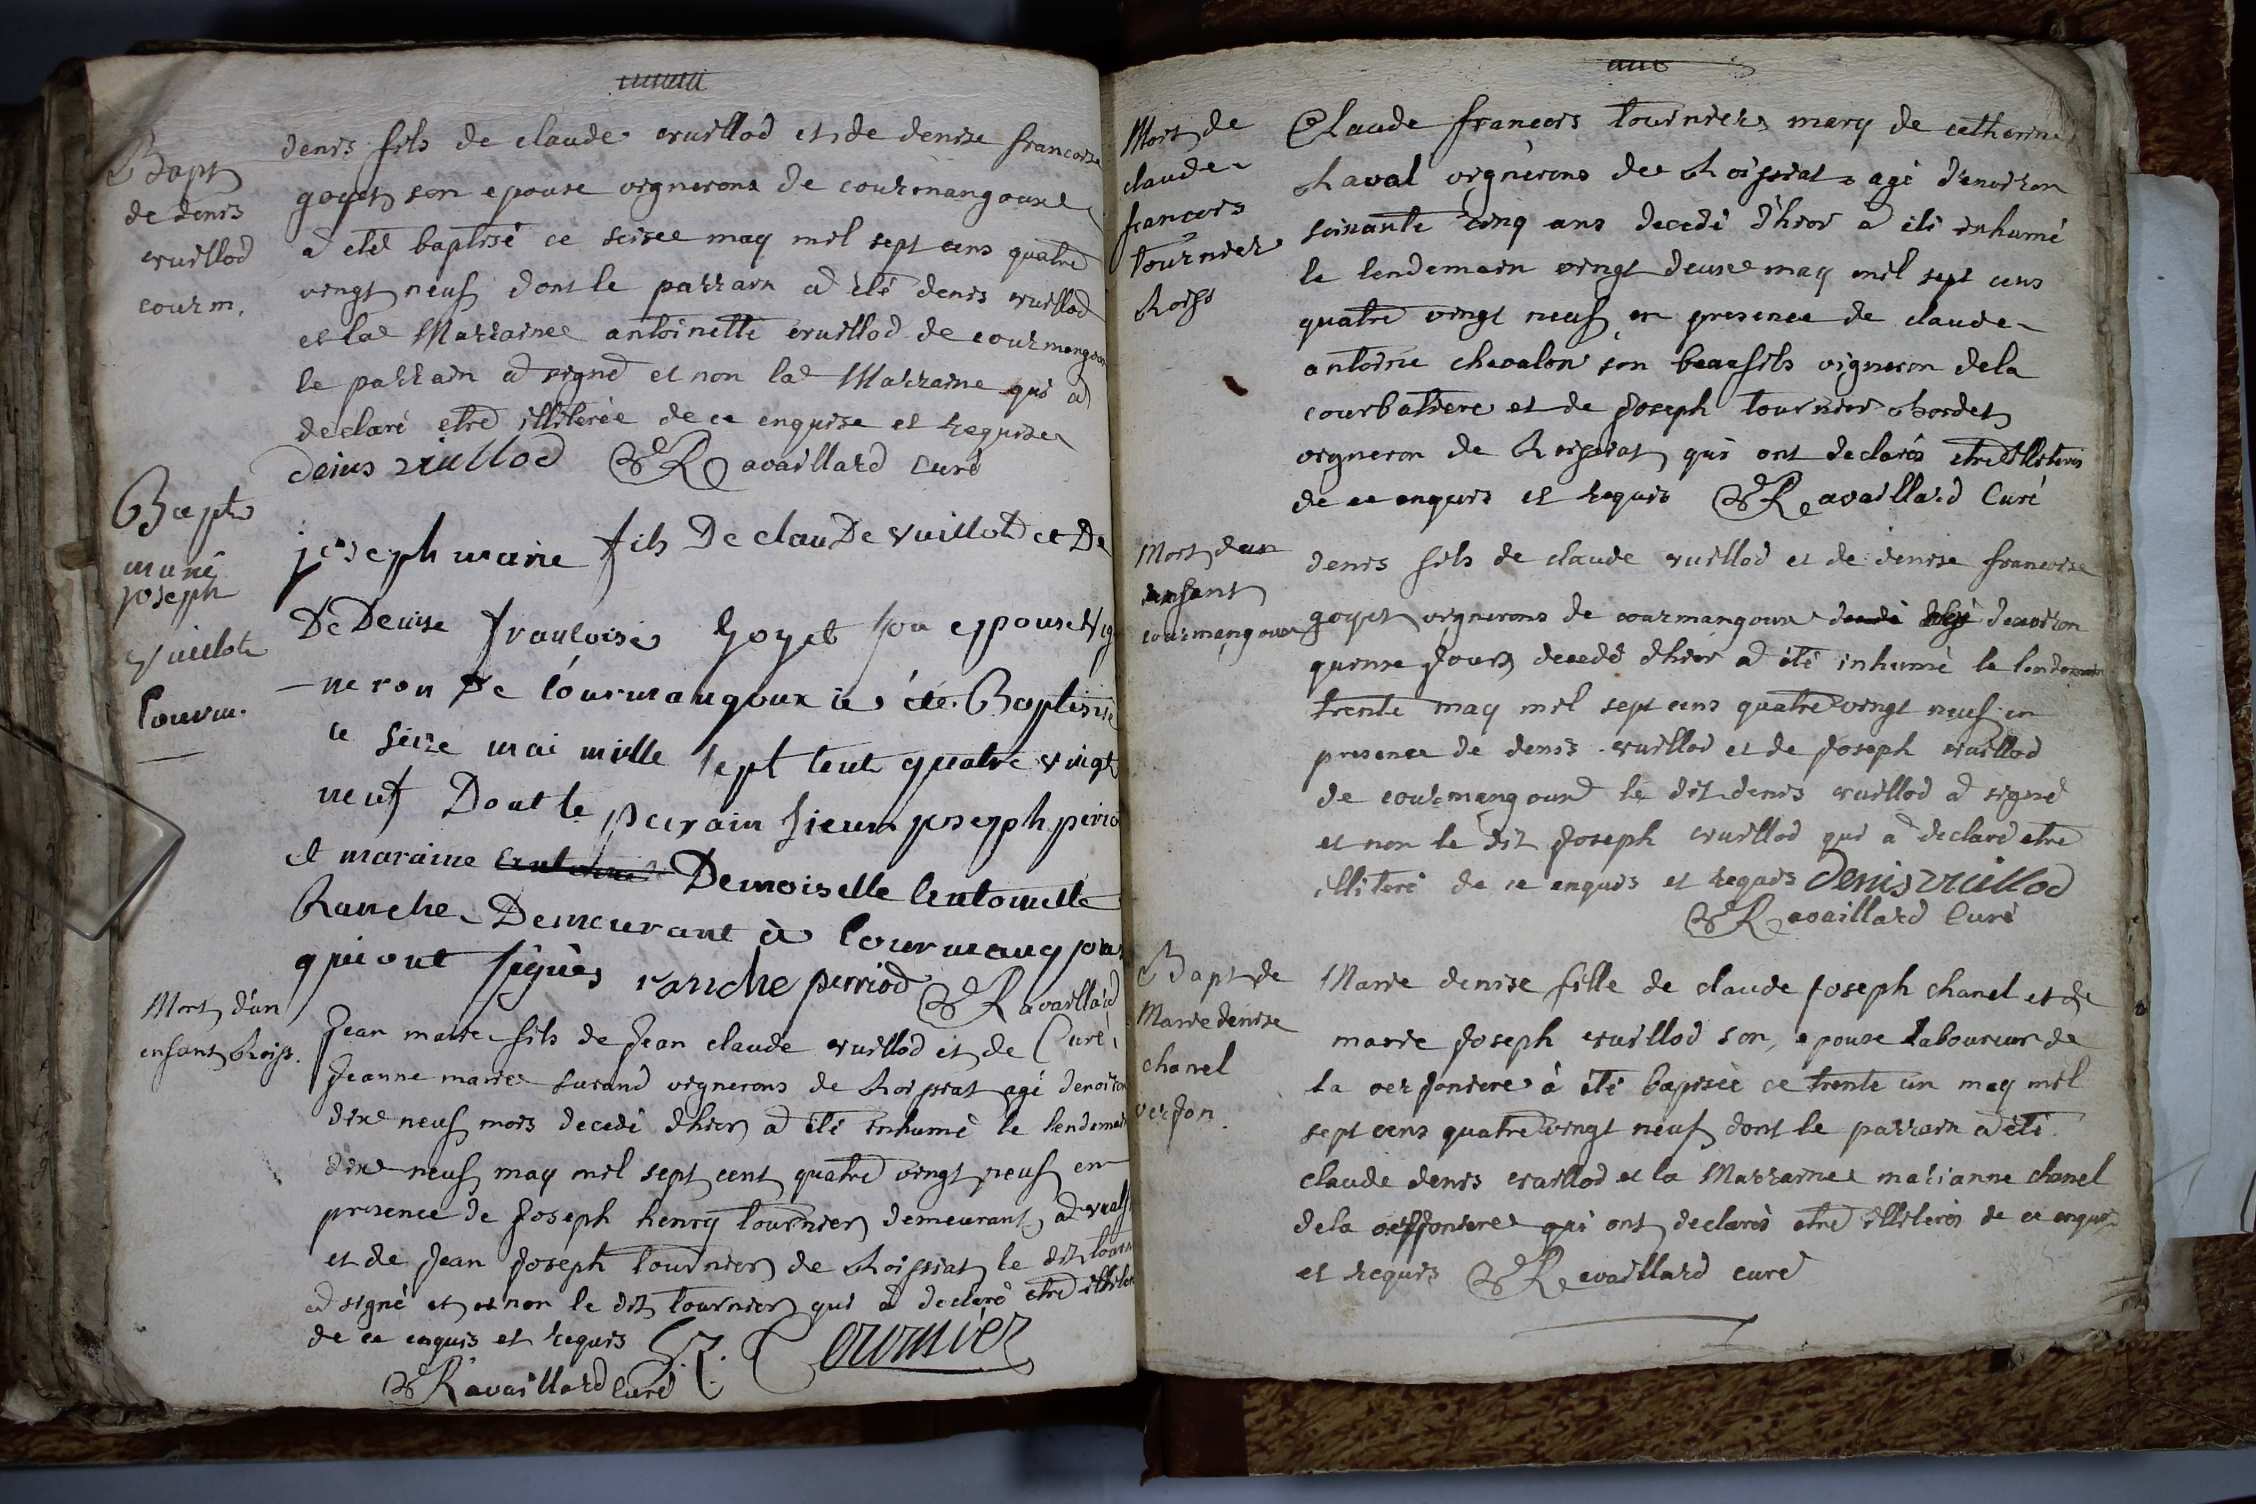 Bapt
de denis
vuillod
courm.
denis fils de claude vuillod et de denise francoise
goyet son epouse vignerons de courmangoux
a eté baptisé ce seise may mil sept cens quatre
vingt neuf dont le parrain a été denis vuillod
et la Marraine antoinette vuillod de courmangoux
le parrain a signé et non la Marraine qui a
declaré etre illiterée de ce enquise et requise
denis vuillod Ravaillard Curé
Bapt
marie
joseph
vuillot
Courm.
joseph marie fils De clauDe vuillot et De
De Denise françoise Goyet son epouse vig
-neron De Courmangoux a été Baptisé
ce seize mai mille sept cent quatre vingt
neuf Dont le parain sieur joseph perio
et maraine Demoiselle Antoinette
Ranche Demeurant à Courmangoux
qui ont signés ranche perriod Ravaillard
Curé
Mort d'un
enfant Roiss.
Jean marie fils de Jean claude vuillod et de
Jeanne marie surand vignerons de Roissiat agé denviron
dixe neuf mois decedé d'hier a été inhumé le lendemain
dixe neuf may mil sept cent quatre vingt neuf en
presence de Joseph henry tournier demeurant a
et de Jean Joseph tournier de Roissiat le dit tourn
a signé et et non le dit tournier qui a declaré etre illiter
de ce enquis et requis Tournier
Ravaillard Curé
Mort de
claude
francois
tournier
Roiss
Claude francois tournier mary de catherine
chaval vignerons de Roissiat agé d'environ
soixante cinq ans decedé d'hier a été inhumé
le lendemain vingt deuxe may mil sept cens
quatre vingt neuf en presence de claude
antoine chevalon son beaufils vigneron de la
courbatiere et de Joseph tournier bordet
vigneron de Roissiat qui ont declarés etre illiterés
de ce enquis et requis Ravaillard Curé
Mort dun
enfant
courmangoux
denis fils de claude vuillod et de denise francoise
goyet vignerons de courmangoux denviron
quinse Jours decedé d'hier a été inhumé le lendemain
trente may mil sept cens quatre vingt neuf en
presence de denis vuillod et de Joseph vuillod
de courmangoux le dit denis vuillod a signé
et non le dit Joseph vuillod qui a declaré etre
illiteré de ce enquis et requis Denis vuillod
Ravaillard Curé
Bapt de
Marie denise
chanel
verjon.
Marie denise fille de claude Joseph chanel et de
marie Joseph vuillod son epouse laboureur de
la verjoniere à été baptisée ce trente un may mil
sept cens quatre vingt neuf dont le parrain a été
claude denis vuillod et la Marraine marianne chanel
de la verjoniere qui ont declarés etre illiterés de ce enquis
et requis Ravaillard curé